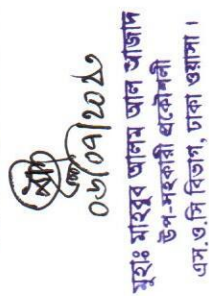 ০৬/০৭/২০২৩
মুহাঃ মাহবুব আলম আল আজাদ
উপ-সহকারী প্রকৌশলী
এস.ও.সি বিভাগ, ঢাকা ওয়াসা।